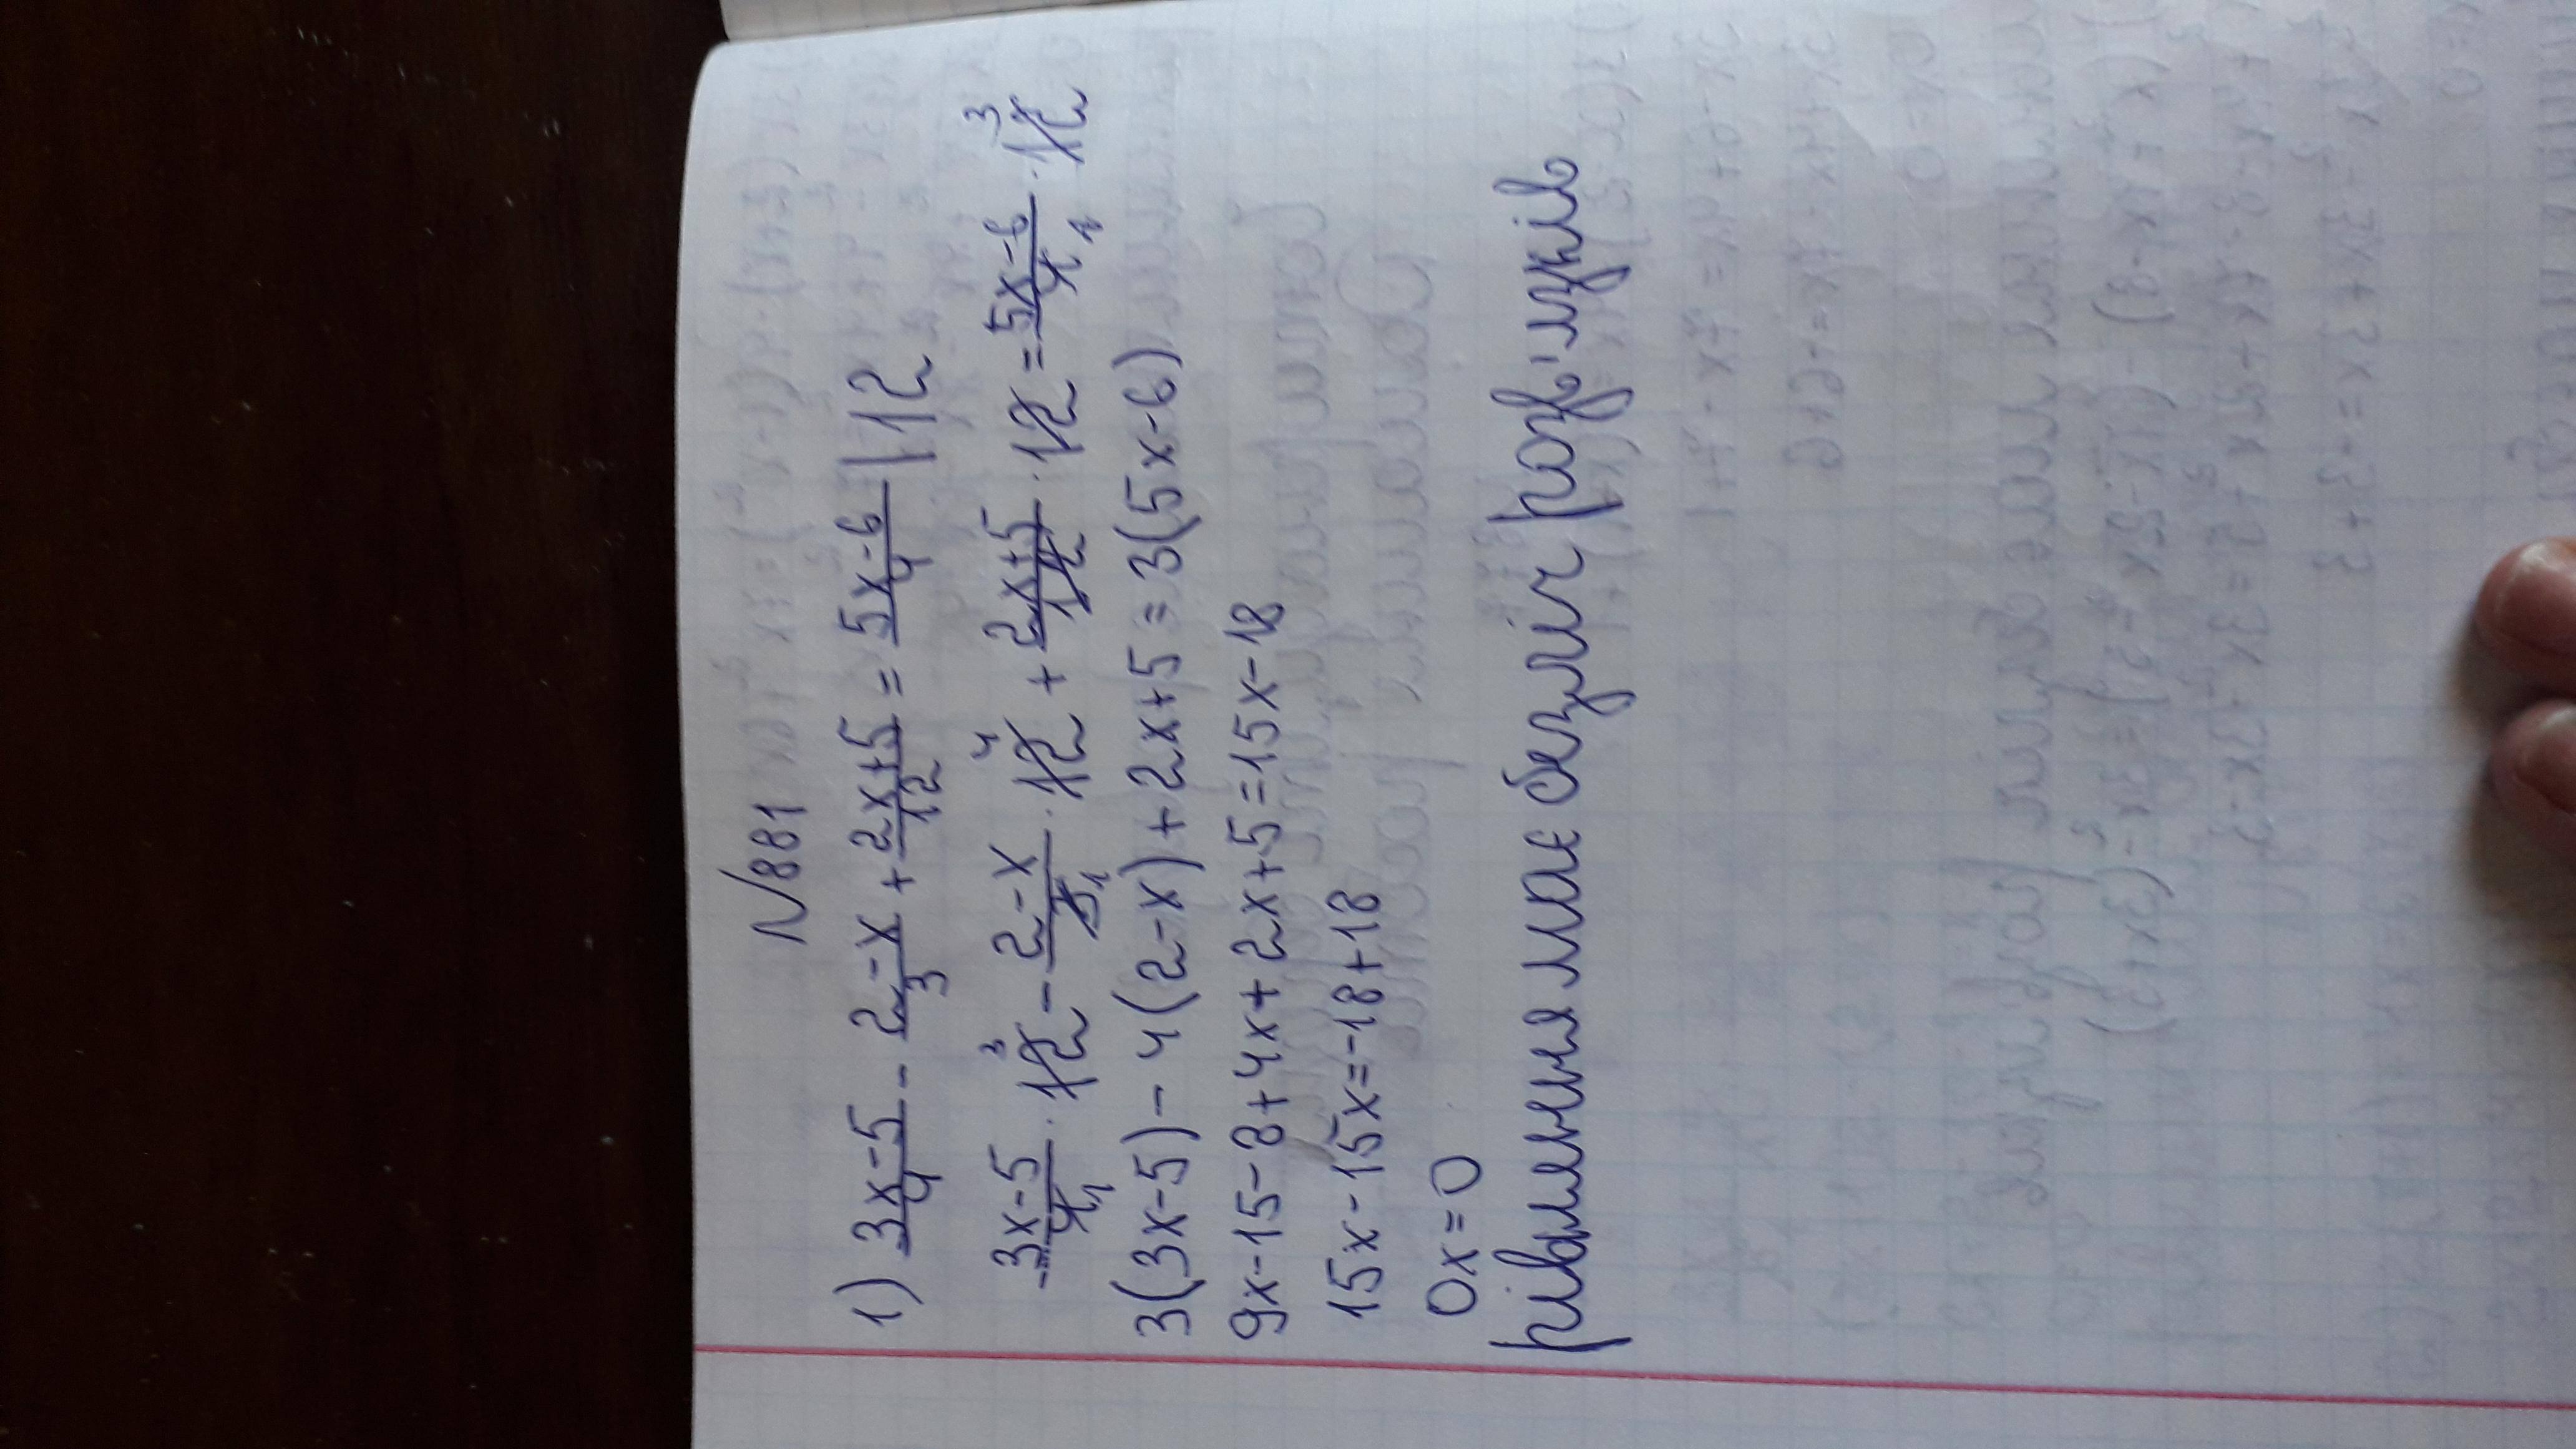 N881
1) 3x-5/4 - 2-x/3 + 2x+5/12 = 5x-6/4 | 12
3x-5/4 1 · 12 3 - 2-x/3 1 · 12 4 + 2x+5/12 · 12 = 5x-6/4 1 · 12 3
3(3x-5)-4(2-x)+2x+5=3(5x-6)
9x-15-8+4x+2x+5=15x-18
15x-15x=-18+18
0x=0
рівняння має безліч розв'язків